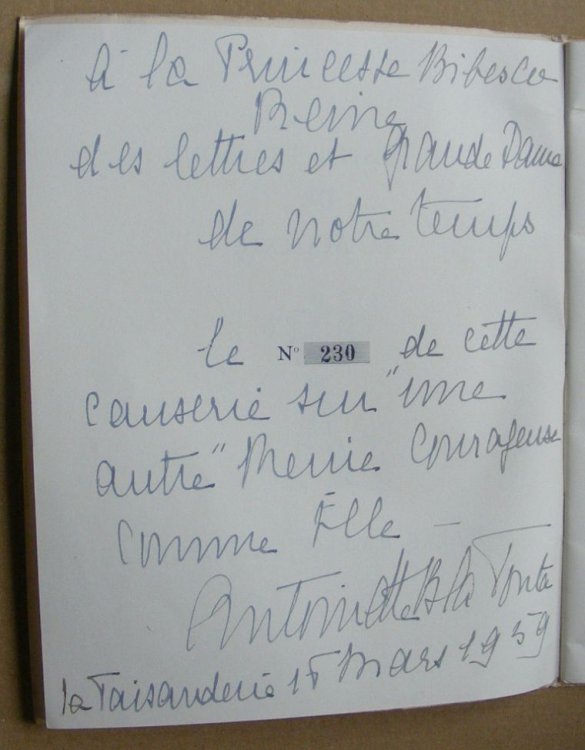 à la Princesse Bibesco
Reine
des lettres et grande Dame
de notre temps
le N° 230 de cette
causerie sur "une
autre" Reine Courageuse
comme Elle —
Antoinette
la Faisanderie Mars 1959